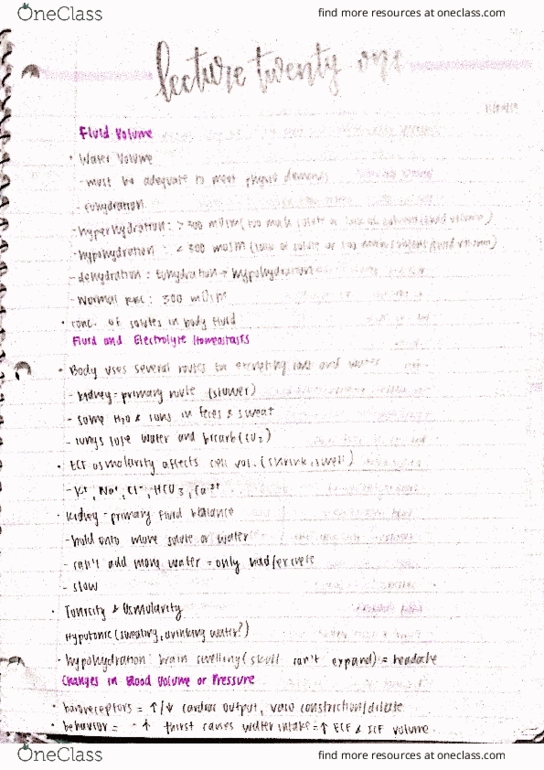 OneClass
find more resources at oneclass.com
lecture twenty one
Fluid Volume
• Water Volume
- must be adequate to meet demands
- euhydration
- hyperhydration: > 300 mOsm (too much solute or lack of
- hypohydration: < 300 mOsm (lack of solute or too much
- dehydration: euhydration → hypohydration
- Normal : 300 mOsm
• conc. of solutes in body fluid
Fluid and Electrolyte Homeostasis
• Body uses several routes for excreting ions and water
- kidney - primary route (slower)
- some H2O & ions in feces & sweat
- lungs lose water and bicarb (CO2)
• ECF osmolarity affects cell vol. (shrink, swell)
- K+, Na+, Cl-, HCO3, Ca2+
• Kidney - primary fluid balance
- hold onto more solute or water
- can't add more water = only hold/excrete
- slow
• Tonicity & Osmolarity
Hypotonic (sweating, drinking water?)
- hypohydration: brain swelling (skull can't expand) = headache
Changes in Blood Volume or Pressure
• baroreceptors = ↑/↓ cardiac output, vaso constriction/dilate
• behavior = - ↑ thirst causes water intake = ↑ ECF & ICF volume.
OneClass
find more resources at oneclass.com